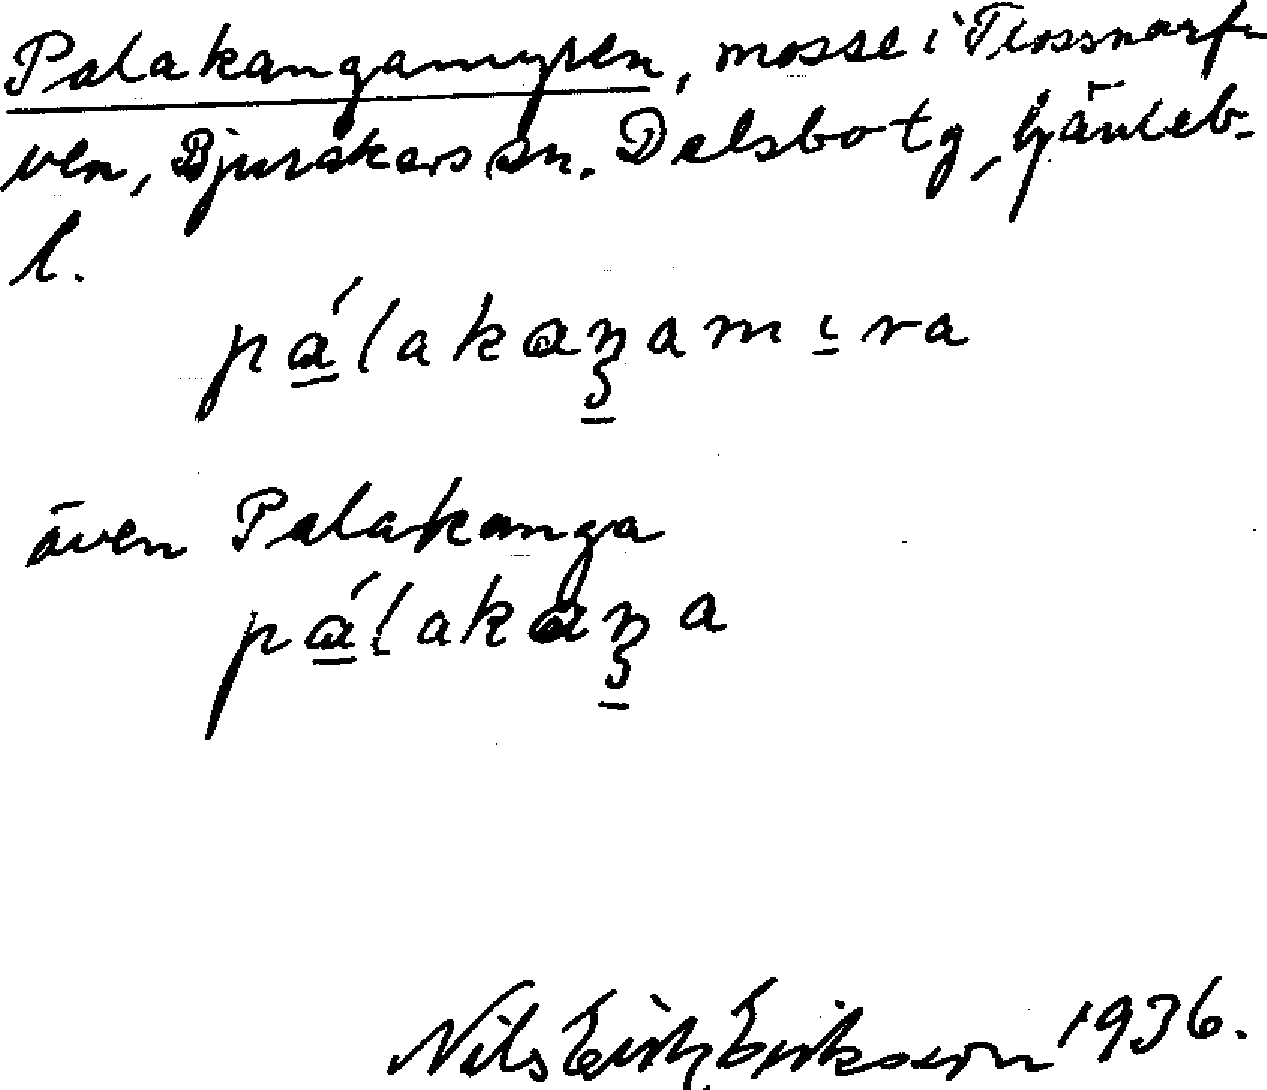 Palakangamyren, mosse i Flossnarf-
ven, Bjuråkers sn. Delsbo tg, Gävleb-
l.
pálakaŋamıra
även Palakanga
pálakaŋa
Nils Erik Eriksson 1936.